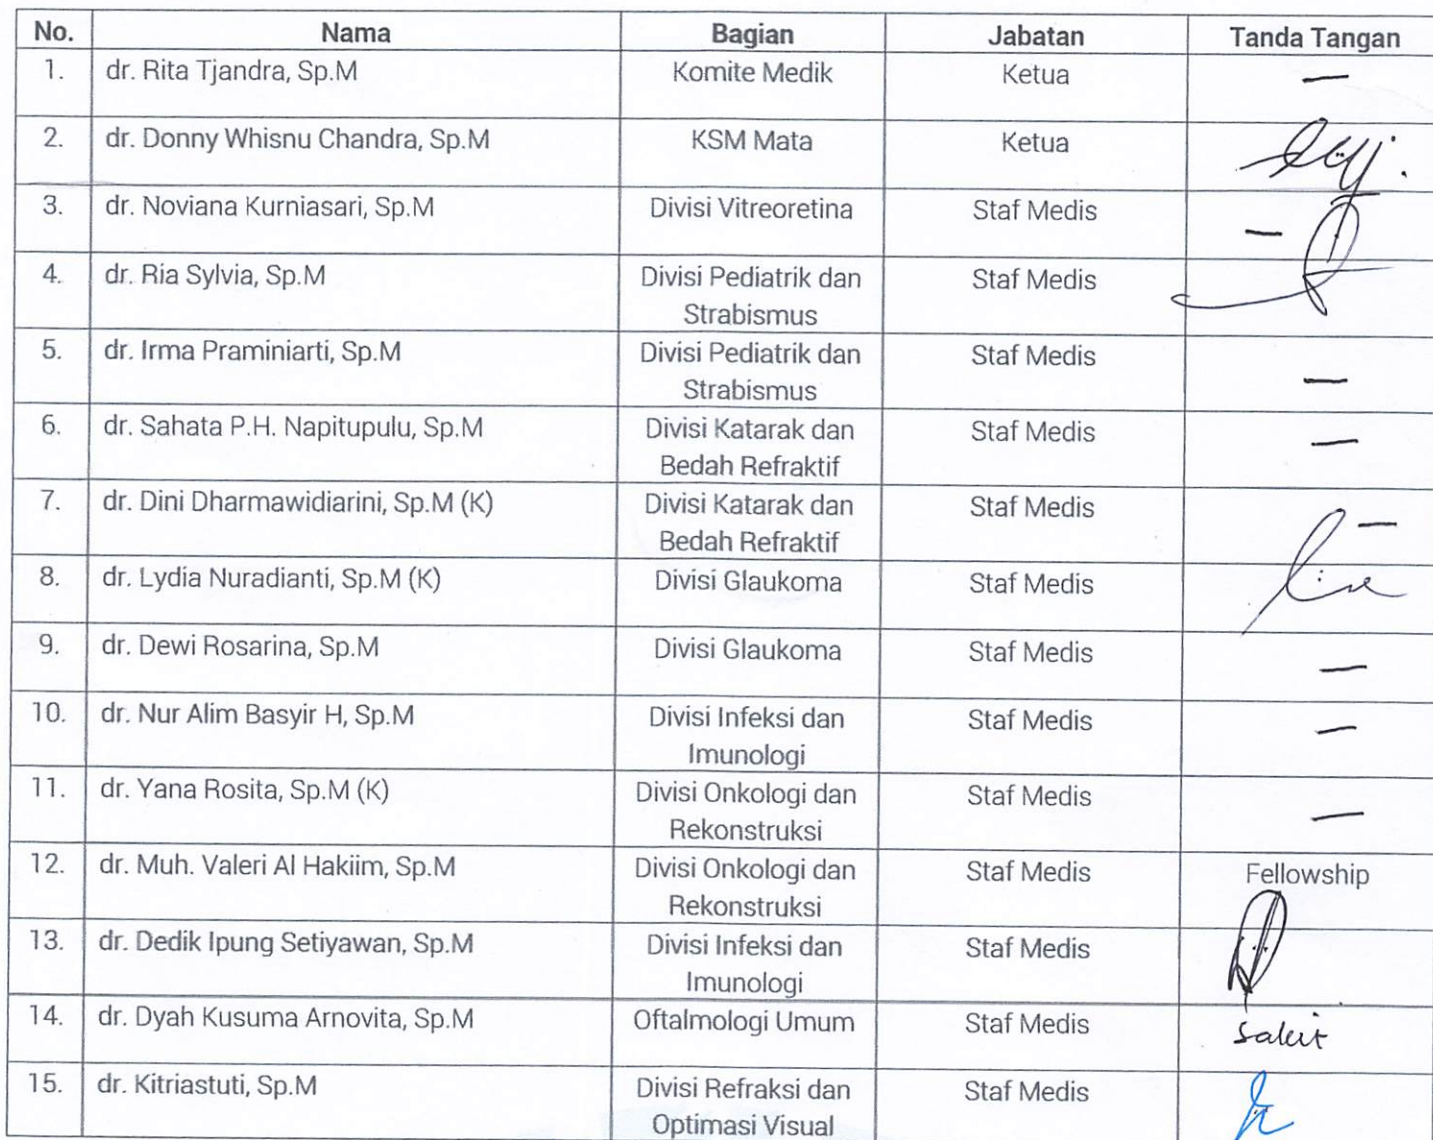 No. Nama Bagian Jabatan Tanda Tangan
1. dr. Rita Tjandra, Sp.M Komite Medik Ketua —
2. dr. Donny Whisnu Chandra, Sp.M KSM Mata Ketua
3. dr. Noviana Kurniasari, Sp.M Divisi Vitreoretina Staf Medis —
4. dr. Ria Sylvia, Sp.M Divisi Pediatrik dan Staf Medis
Strabismus
5. dr. Irma Praminiarti, Sp.M Divisi Pediatrik dan Staf Medis —
Strabismus
6. dr. Sahata P.H. Napitupulu, Sp.M Divisi Katarak dan Staf Medis —
Bedah Refraktif
7. dr. Dini Dharmawidiarini, Sp.M (K) Divisi Katarak dan Staf Medis —
Bedah Refraktif
8. dr. Lydia Nuradianti, Sp.M (K) Divisi Glaukoma Staf Medis
9. dr. Dewi Rosarina, Sp.M Divisi Glaukoma Staf Medis —
10. dr. Nur Alim Basyir H, Sp.M Divisi Infeksi dan Staf Medis —
Imunologi
11. dr. Yana Rosita, Sp.M (K) Divisi Onkologi dan Staf Medis —
Rekonstruksi
12. dr. Muh. Valeri Al Hakiim, Sp.M Divisi Onkologi dan Staf Medis Fellowship
Rekonstruksi
13. dr. Dedik Ipung Setiyawan, Sp.M Divisi Infeksi dan Staf Medis
Imunologi
14. dr. Dyah Kusuma Arnovita, Sp.M Oftalmologi Umum Staf Medis sakit
15. dr. Kitriastuti, Sp.M Divisi Refraksi dan Staf Medis
Optimasi Visual